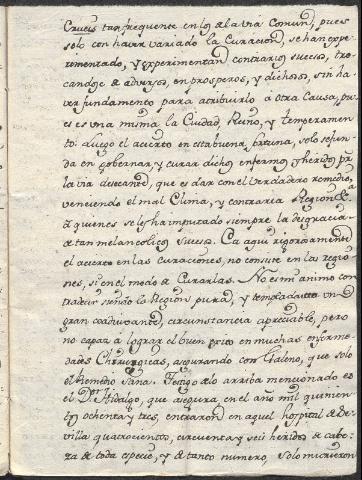 Crueis tan frequente en los de la via Comun, pues
solo con haver variado la Curacion, se han expe-
rimentado, y experimentan contrarios sucesos, tro-
candose de adversos, en prosperos, y dichosos, sin ha-
ver fundamento para atribuirlo à otra Causa, pu-
es es una misma la Ciudad, Reyno, y temperamen-
to: luego el acierto en esta buena fortuna, solo se fun-
da en gobernar, y curar dichos enfermos, y heridos pr.
la via desecante, que es dar con el verdadero remedio,
venciendo el mal Clima, y contraria Region &
à quienes se les ha imputado siempre la desgracia
de tan melancolicos sucesos. Ca aqui rigorosamente
el acierto en las Curaciones, no consiste en las regio-
nes, si en el modo de Curarlas. No es mi animo con-
tradecir siendo la Region pura, y templada un
gran coadiuvante, circunstancia apreciable, pero
no capaz à lograr el buen exito en muchas enferme-
dades Chirurgicas, asegurando con Galeno, que solo
el Remedio Sana. Testigo de lo arriba mencionado es
el Dr. Hidalgo, que asegura, en el año mil quinien-
tos ochenta y tres, entraron en aquel hospital de Se-
villa quatrocientos, cincuenta y seis heridos de cabe-
za de toda especie, y de tanto numero, solo murieron